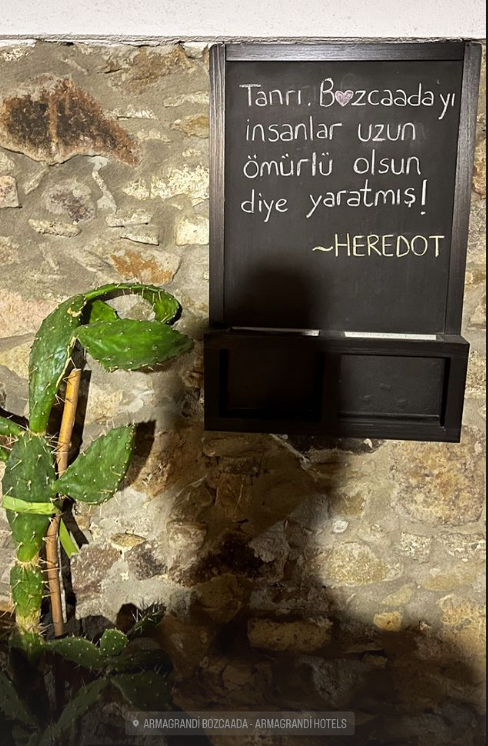 Tanrı, Bozcaada'yı
insanlar uzun
ömürlü olsun
diye yaratmış!
~HEREDOT
ARMAGRANDİ BOZCAADA - ARMAGRANDİ HOTELS